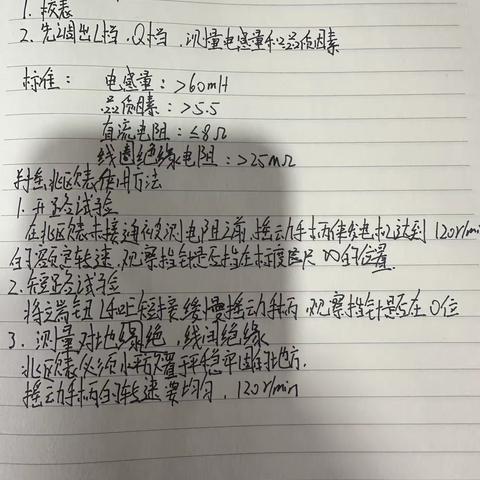 1. 校表
2. 先调出L档、Q档，测量电感量和品质因素
标准： 电感量：>60mH
品质因素：>5.5
直流电阻：≤8Ω
线圈绝缘电阻：>25MΩ
手摇兆欧表使用方法
1. 开路试验
在兆欧表未接通被测电阻之前，摇动手柄使发电机达到120r/min
的额定转速，观察指针是否指在标度尺∞的位置
2. 短路试验
将端钮L和E短接，缓慢摇动手柄，观察指针是否在0位
3. 测量对地绝缘，线间绝缘
兆欧表必须水平放置于平稳牢固的地方.
摇动手柄的转速要均匀，120r/min